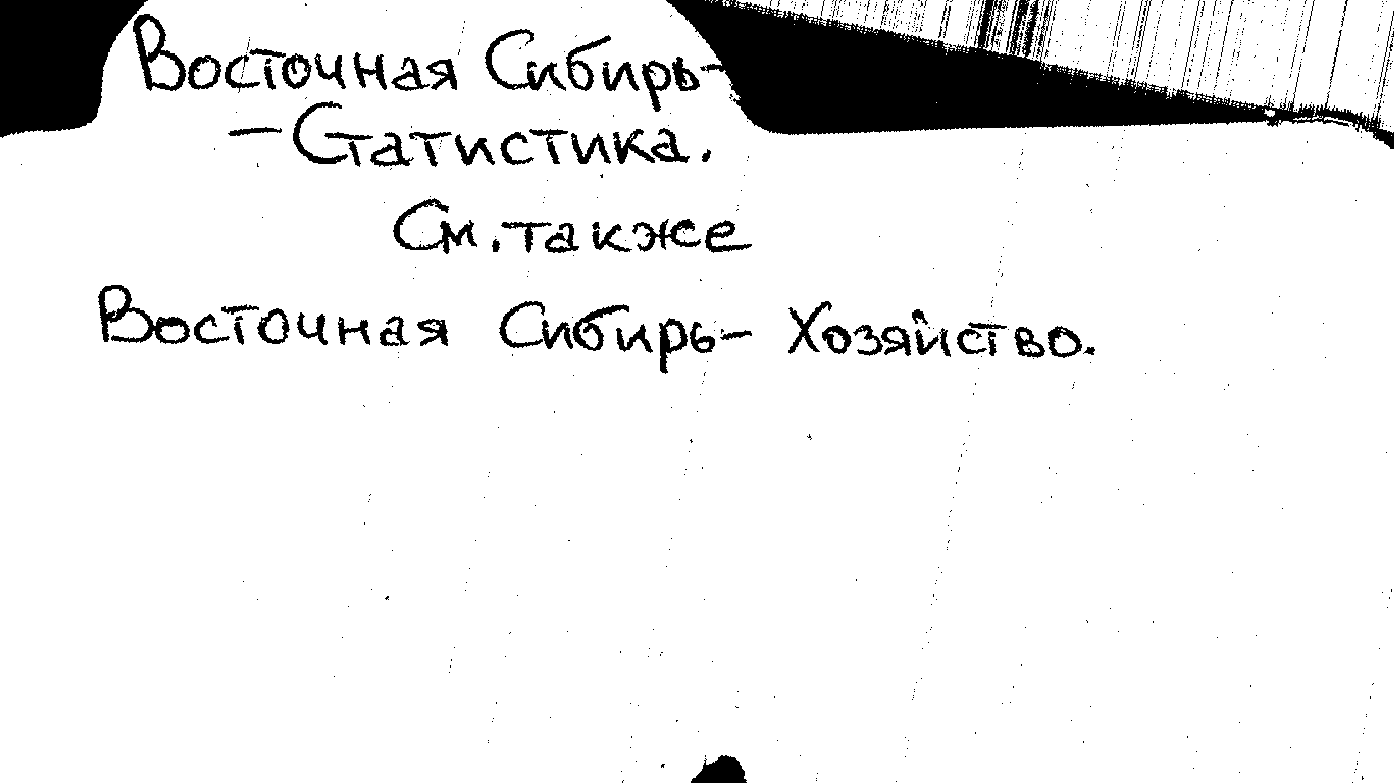 Восточная Сибирь-
-Статистика.
См. также
Восточная Сибирь- Хозяйство.